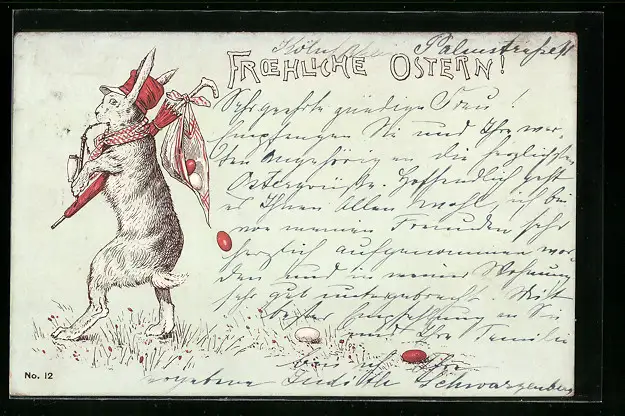 Köln Rhein Palmstraße 11
FRŒHLICHE OSTERN!
Sehr geehrte gnädige Frau!
Empfangen Sie und Ihre wer-
ten Angehörigen die herzlichsten
Ostergrüße. Hoffendlich geht
es Ihnen Allen wohl, ich bin
von meinen Freunden sehr
herzlich aufgenommen wor-
den und in meiner Wohnung
sehr gut untergebracht. Mit
bester Empfehlung an Sie
und Ihre Familie
bin ich Ihre
ergebene Judith Schwarzenberg
No. 12